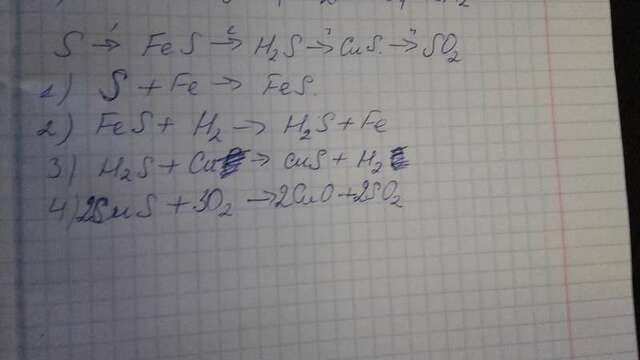 S → FeS → H2S → CuS. → SO2
1) S + Fe → FeS.
2) FeS + H2 → H2S + Fe
3) H2S + Cu → CuS + H2
4) 2CuS + 3O2 → 2CuO + 2SO2